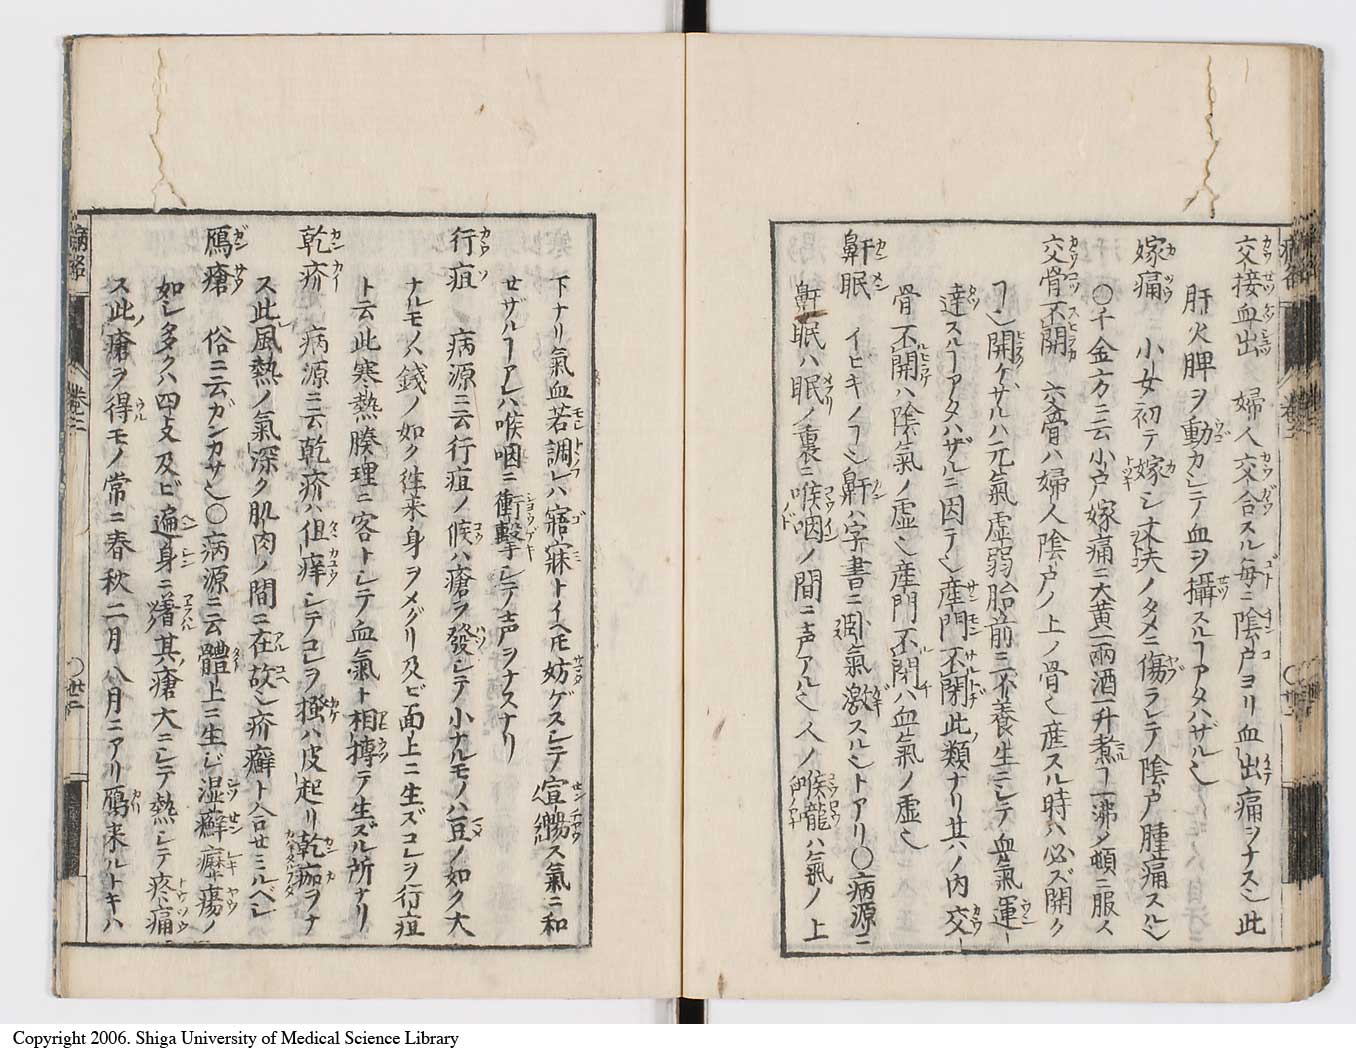 交接血出 婦人交合スル毎ニ陰戸ヨリ血出痛ヲナス也此
肝火脾ヲ動カシテノ血ヲ攝スルヿアタハザル也
嫁痛 小女初テ嫁シ丈夫ノタメニ傷ラレテ陰戸腫痛スル也
〇千金方ニ云小戸嫁痛ニ大黄一兩酒一升煮一沸ノ頓ニ服ス
交骨不開 交骨ハ婦人陰戸ノ上ノ骨也産スル時ハ必ズ開ク
ヿ也開ケザルハ元氣虚弱胎前ニ不養生ニシテ血氣運
達スルヿアタハザルニ因テ也産門不閉此類ナリ其ノ内交
骨不開ハ陰氣ノ虚也産門不閉ハ血氣ノ虚也
鼾眠 イビキノヿ也鼾ハ字書ニ氣激スル也トアリ〇病源ニ
鼾眠ハ眠ノ裏ニ喉咽ノ間ニ声アル也人ノ喉嚨ハ氣ノ上
下ナリ氣血若調レハ寤寐トイヘモ妨ゲスシテ宣暢ス氣ニ和
せザルヿアレハ喉咽ニ衝擊シテノ声ヲナスナリ
行疽 病源ニ云行疽ノ候ハ瘡ヲ發シテ小ナルモノハ豆ノ如ク大
ナルモノハ錢ノ如ク徃来身ヲメグリ及ビ面上ニ生ズコレヲ行疽
ト云此寒熱腠理ニ客トシテ血氣ト相搏テ生ズル所ナリ
乾疥 病源ニ云乾疥ハ但痒シテコレヲ掻ハ皮起リ乾痂ヲナ
ス此風熱ノ氣深ク肌肉ノ間ニ在故也疥癬ト合せミルベシ
鴈瘡 俗ニ云ガンカサ也〇病源ニ云體上ニ生ジ湿癬癧瘍ノ
如シ多クハ四支及ビ遍身ニ着其瘡大ニシテ熱シテ疼痛
ス此瘡ヲ得モノ常ニ春秋二月八月ニアリ鴈来ルトキハ
巻三
〇廿二
Copyright 2006. Shiga University of Medical Science Library